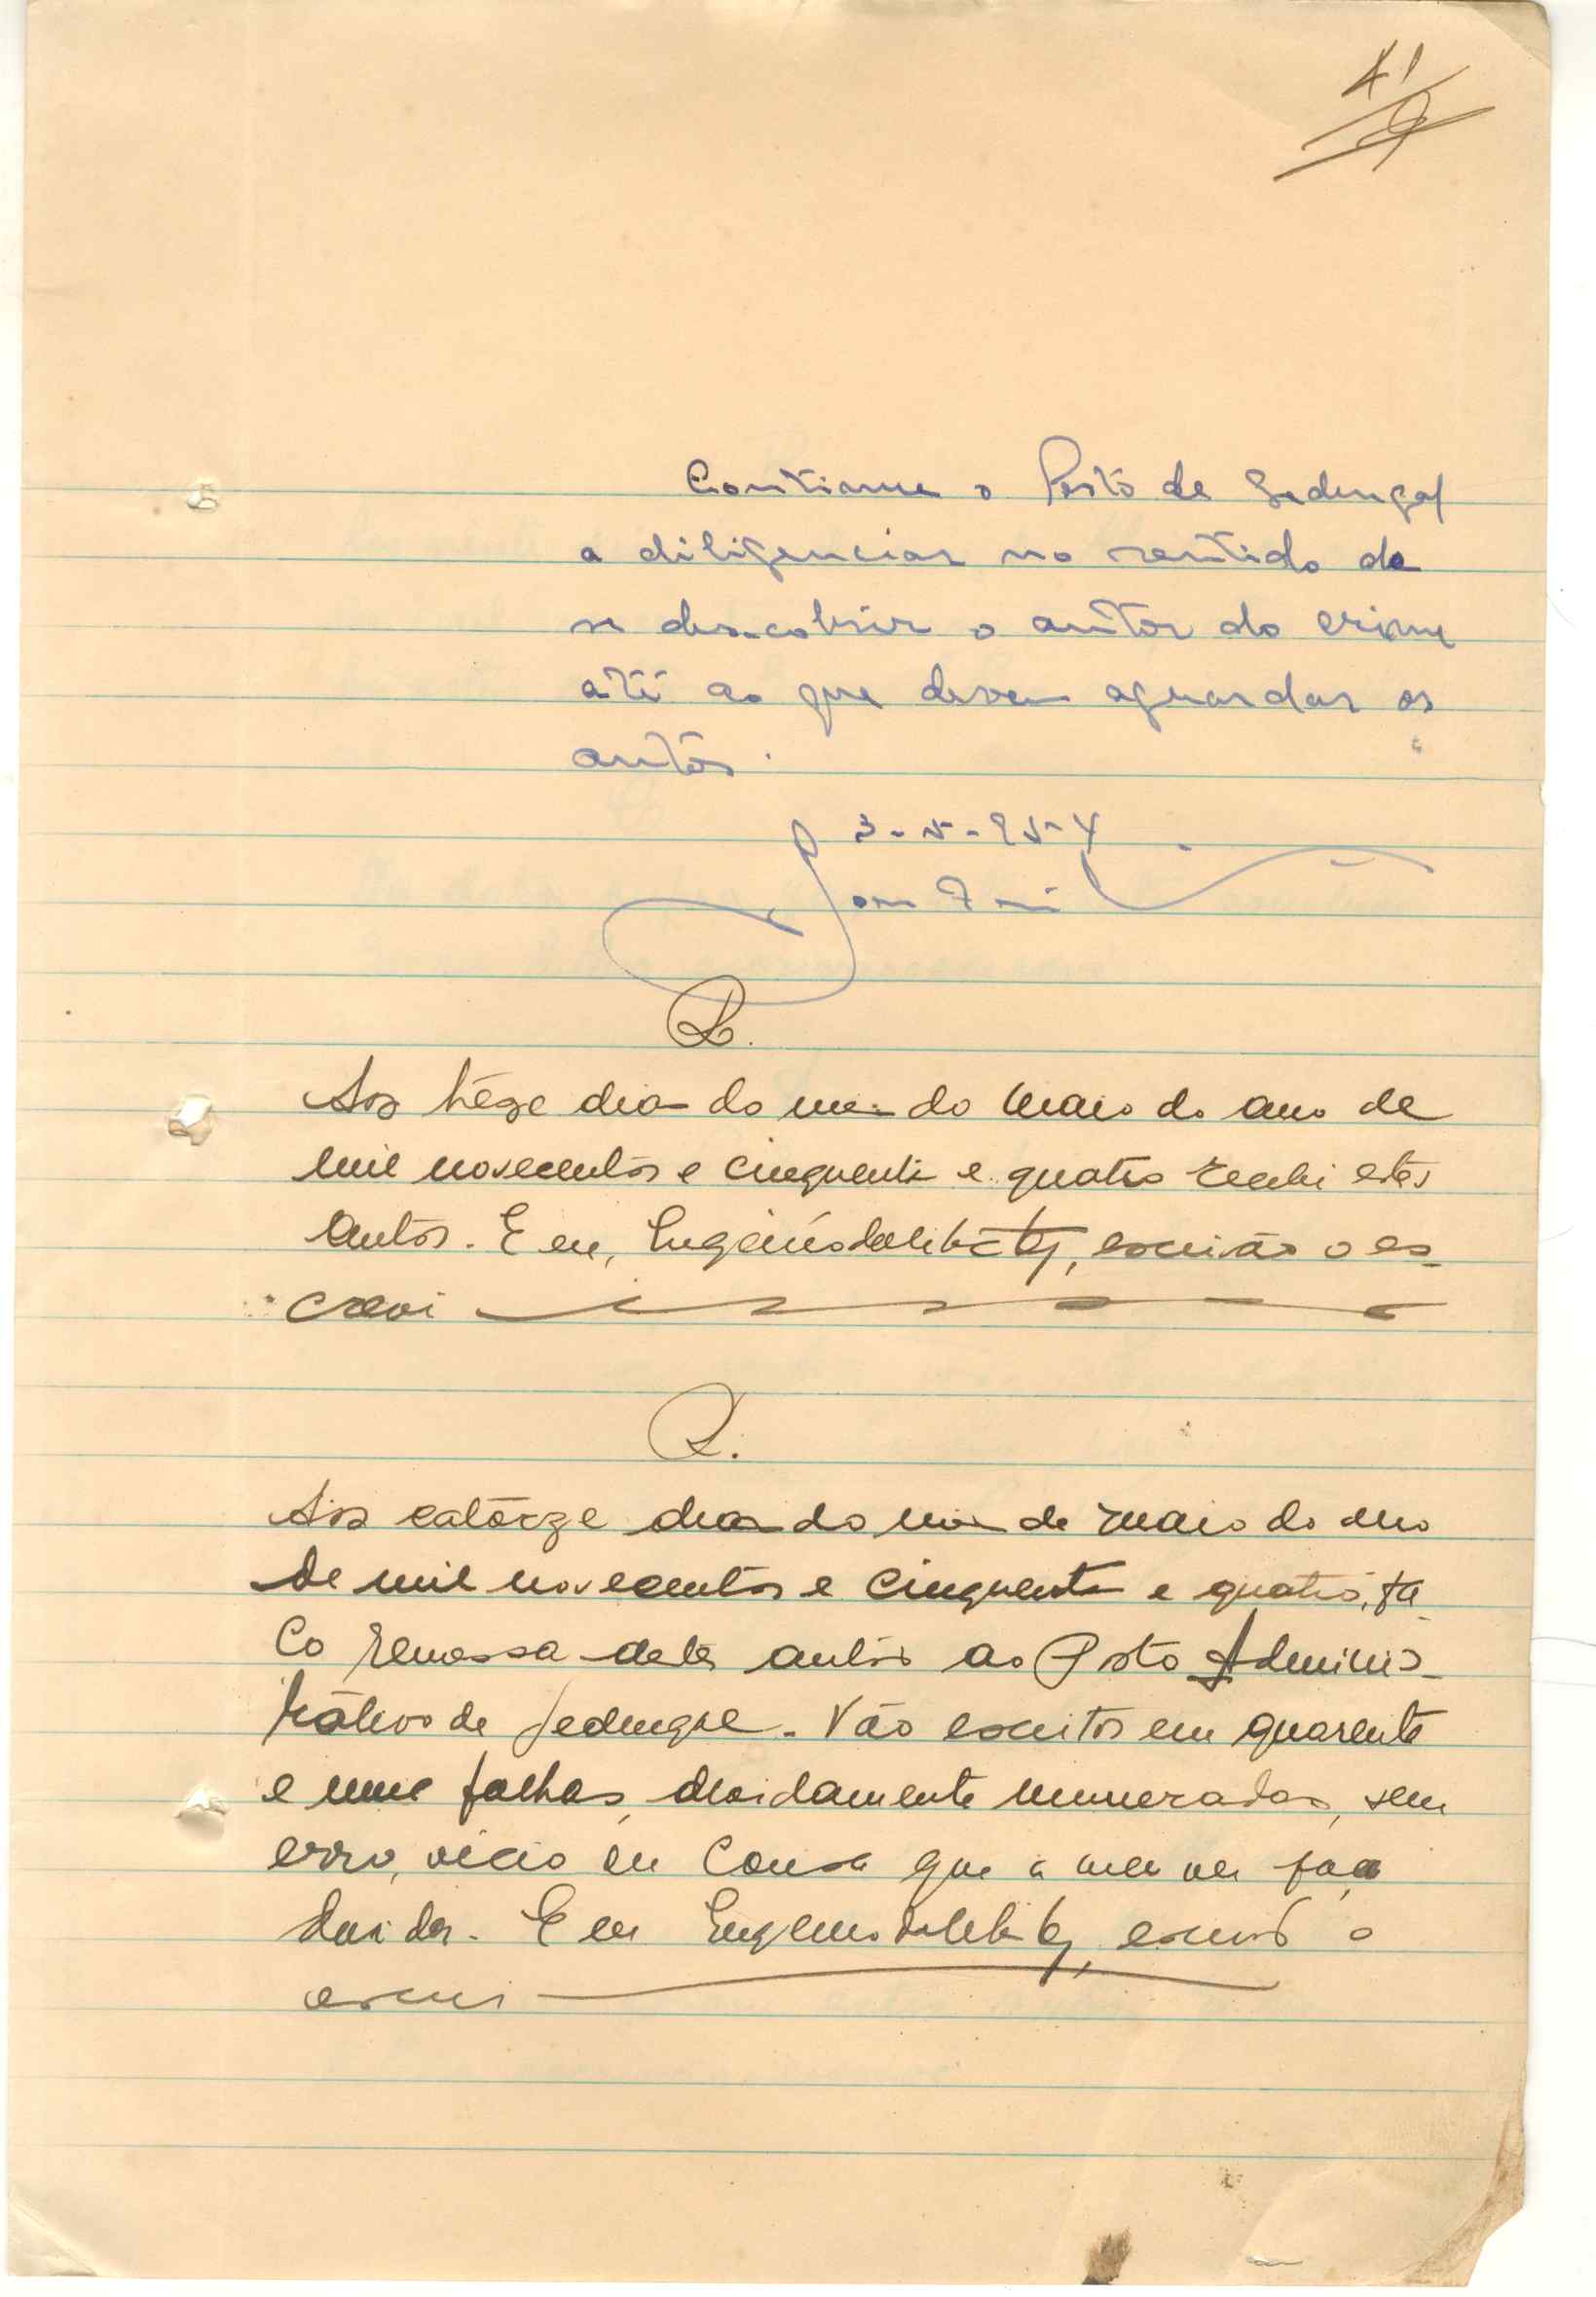 41
Continue o Posto de Sedengal
a diligenciar no sentido de
se descobrir o autor do crime
até ao que devem aguardar os
autos.
3-5-954
R.
Aos treze dias do mês do maio do ano de
mil novecentos e cinquenta e quatro recebi estes
autos. E eu, escrivão o es-
crevi
R.
Aos catorze dias do mês de maio do ano
de mil novecentos e cinquenta e quatro, fa-
ço remessa destes autos ao Posto Adminis-
trativo de Sedengal. Vão escritos em quarenta
e uma folhas, devidamente numeradas, sem
erro, vício ou cousa que a meu ver faça
duvidar. E eu escrivão o
escrevi